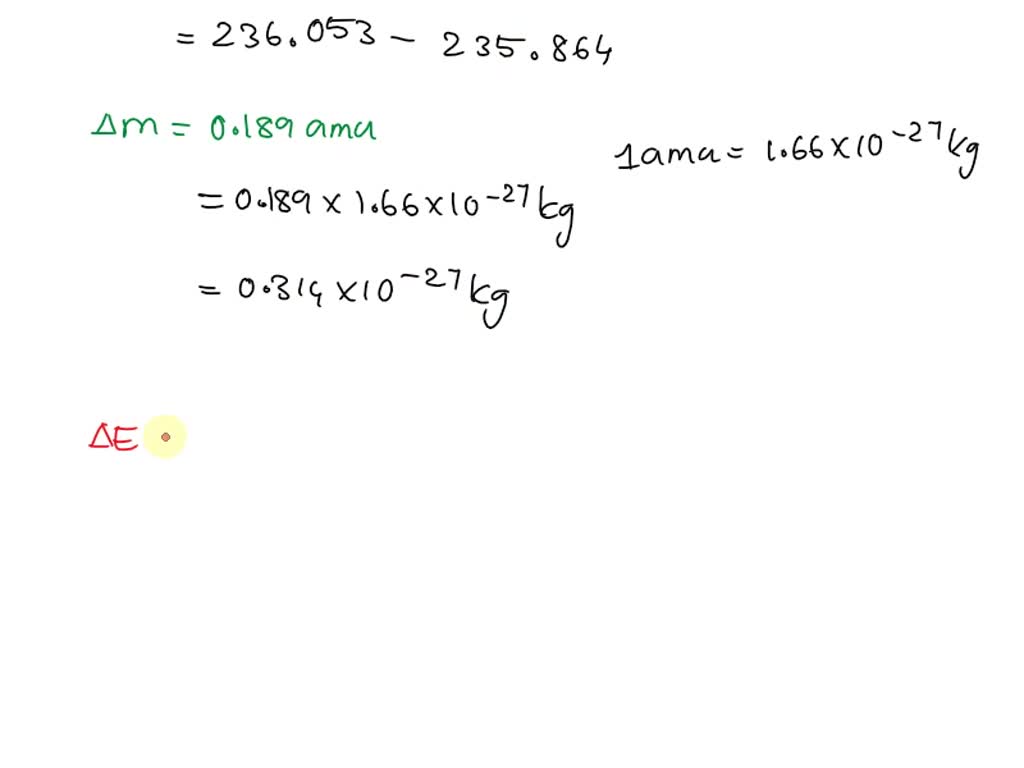 = 236.053 - 235.864
Δm = 0.189 amu
1 amu = 1.66 × 10⁻²⁷ kg
= 0.189 × 1.66 × 10⁻²⁷ kg
= 0.314 × 10⁻²⁷ kg
ΔE